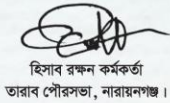 হিসাব রক্ষন কর্মকর্তা
তারাব পৌরসভা, নারায়নগঞ্জ।